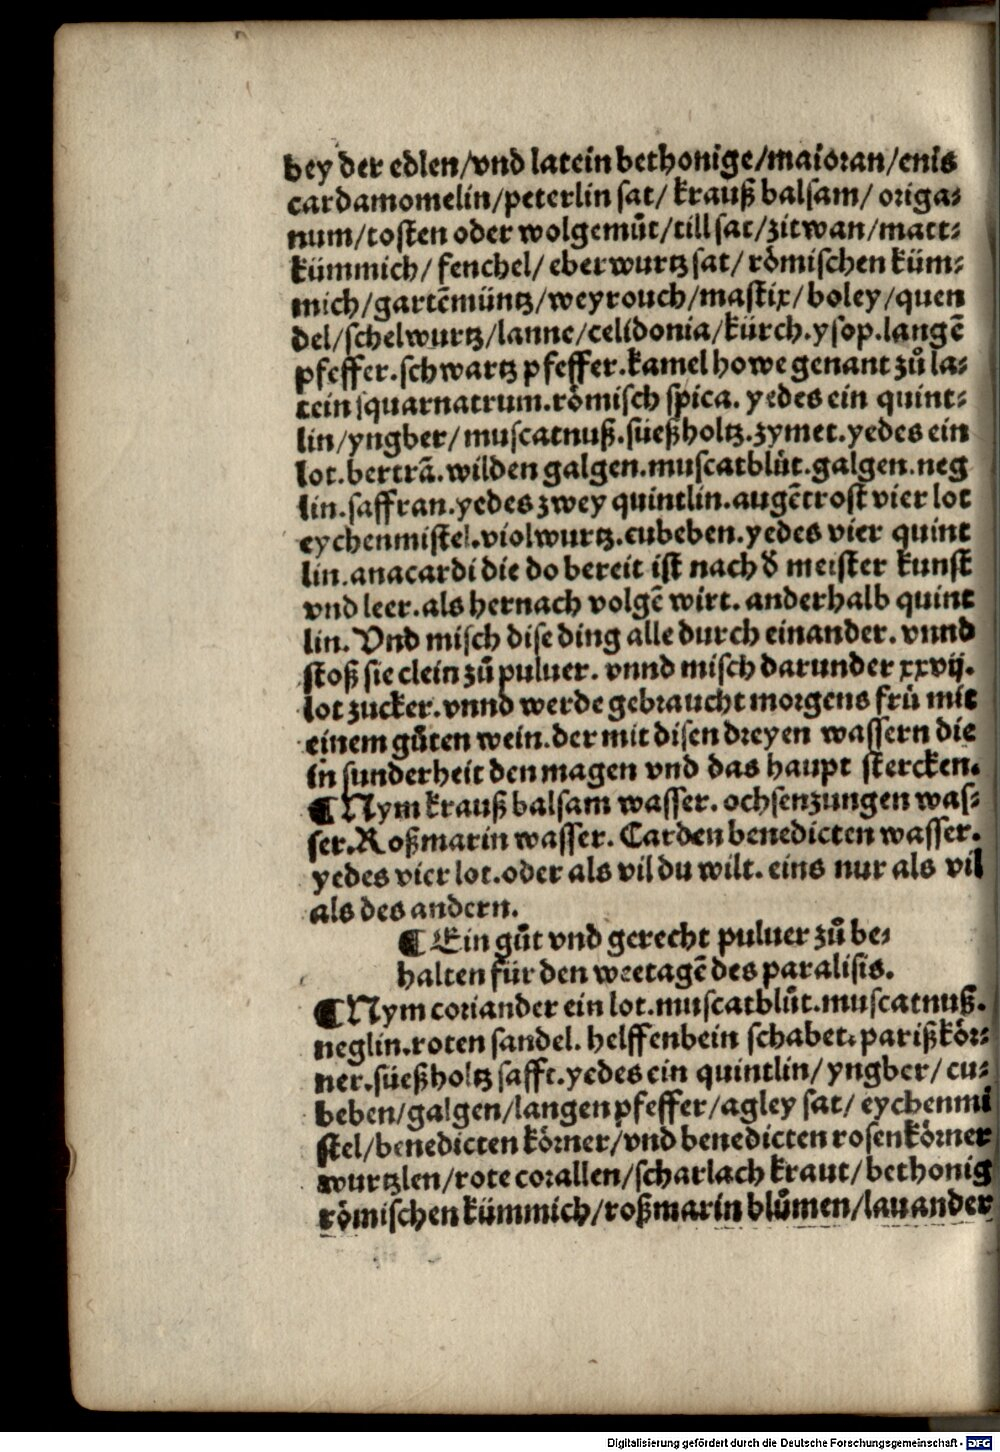 bey der edlen/vnd latein bethonige/maioran/enis
cardamomelin/peterlin sat/ krauß balsam/ origa⸗
num/tosten oder wolgemůt/till sat/zitwan/matt⸗
kümmich/ fenchel/ eberwurtz sat/ römischen küm⸗
mich/gartẽmüntz/weyrouch/mastix/boley/quen
del/schelwurtz/lanne/celidonia/kürch.ysop.langẽ
pfeffer.schwartz pfeffer.kamel howe genant zů la⸗
tein squarnatrum.römisch spica. yedes ein quint⸗
lin/yngber/muscatnuß.süeßholtz.zymet.yedes ein
lot.bertrã.wilden galgen.muscatblůt.galgen.neg
lin.saffran.yedes zwey quintlin.augẽtrost vier lot
eychenmistel.violwurtz.cubeben.yedes vier quint
lin.anacardi die do bereit ist nach d̕ meister kunst
vnd leer.als hernach volgẽ wirt. anderhalb quint
lin. Vnd misch dise ding alle durch einander. vnnd
stoß sie clein zů puluer. vnnd misch darunder xxvij.
lot zucker.vnnd werde gebraucht morgens frů mit
einem gůten wein.der mit disen dreyen wassern die
in sunderheit den magen vnd das haupt stercken.
¶ Nym krauß balsam wasser. ochsenzungen was⸗
ser.Roßmarin wasser. Carden benedicten wasser.
yedes vier lot.oder als vil du wilt. eins nur als vil
als des andern.
¶ Ein gůt vnd gerecht puluer zů be⸗
halten für den weetagẽ des paralisis.
¶ Nym coriander ein lot.muscatblůt.muscatnuß.
neglin.roten sandel. helffenbein schabet. parißkör⸗
ner.süeßholtz safft.yedes ein quintlin/ yngber/ cu⸗
beben/galgen/langen pfeffer/agley sat/ eychenmi
stel/benedicten körner/vnd benedicten rosenkörner
wurtzlen/rote corallen/scharlach kraut/bethonig
römischen kümmich/roßmarin blůmen/lauander
Digitalisierung gefördert durch die Deutsche Forschungsgemeinschaft - DFG